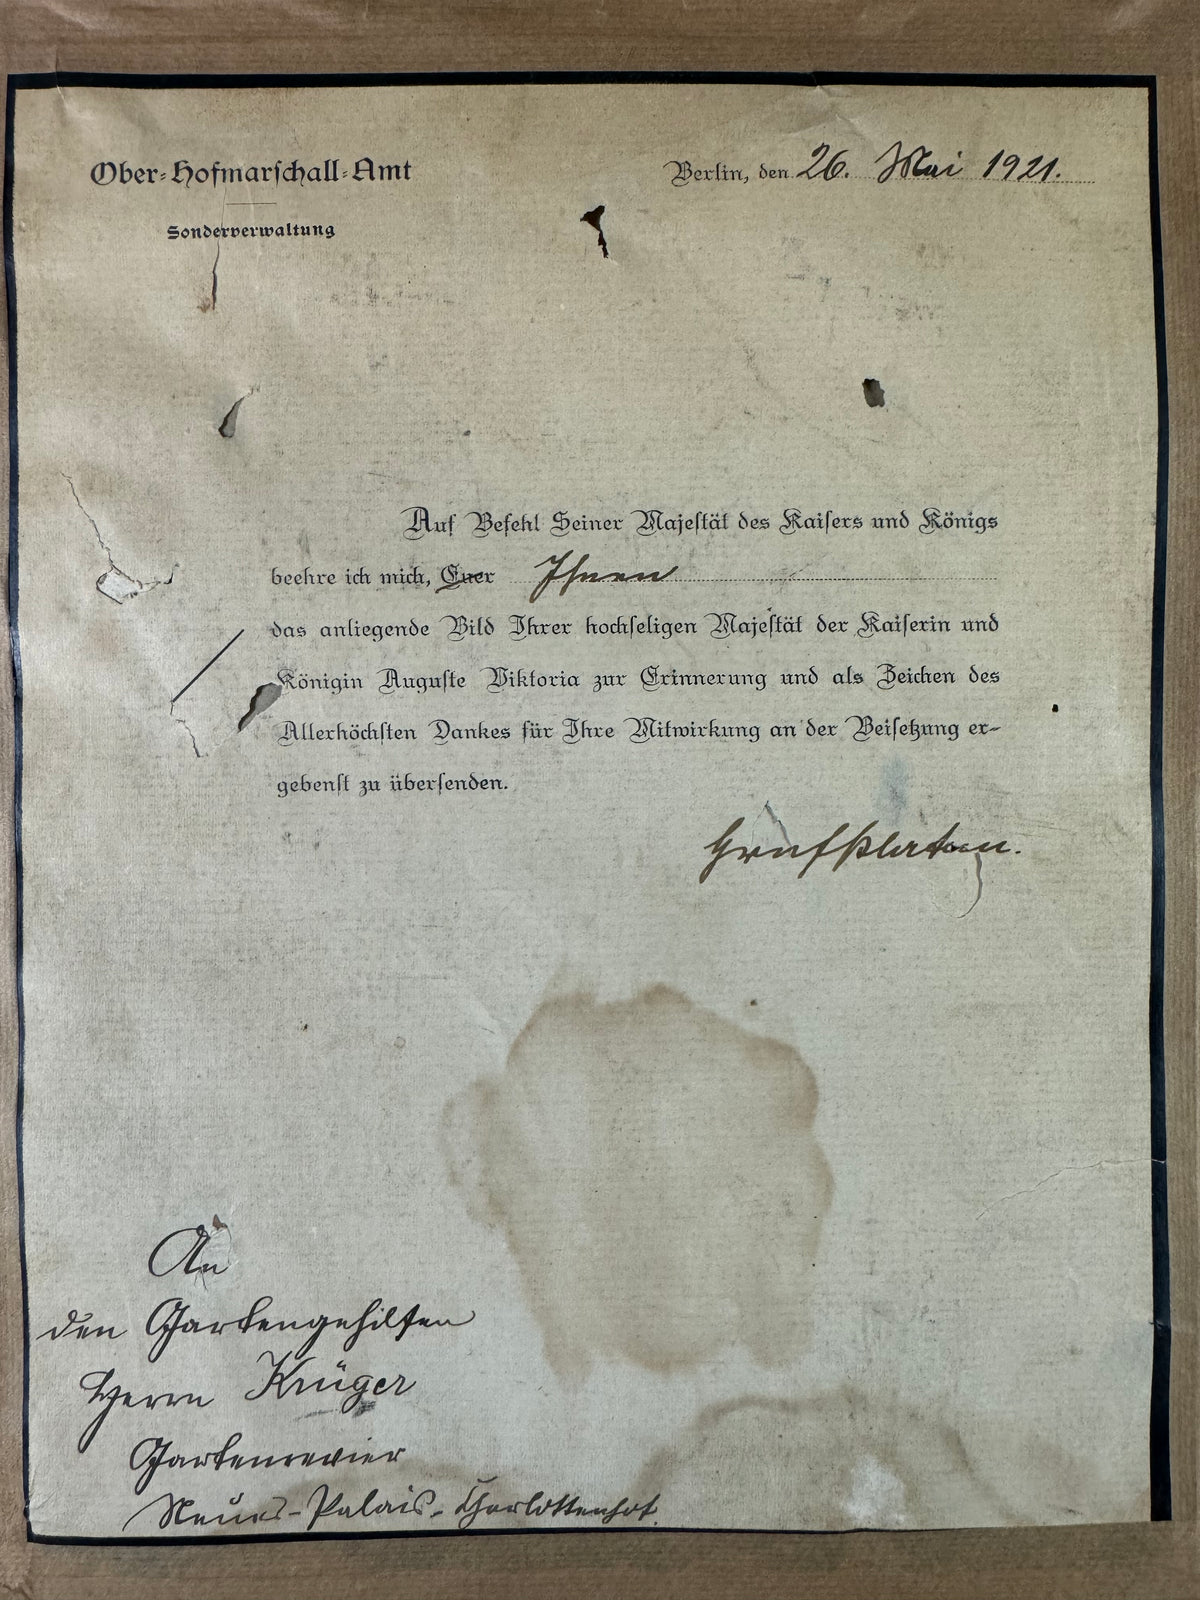 Ober-Hofmarschall-Amt
Sonderverwaltung
Berlin, den 26. Mai 1921.
Auf Befehl Seiner Majestät des Kaisers und Königs
beehre ich mich, Euer Ihnen
das anliegende Bild Ihrer hochseligen Majestät der Kaiserin und
Königin Auguste Viktoria zur Erinnerung und als Zeichen des
Allerhöchsten Dankes für Ihre Mitwirkung an der Beisetzung er-
gebenst zu übersenden.
Graf Platen.
An
den Gartengehilfen
Herrn Krüger
Gartenrevier
Neues-Palais-Charlottenhof.